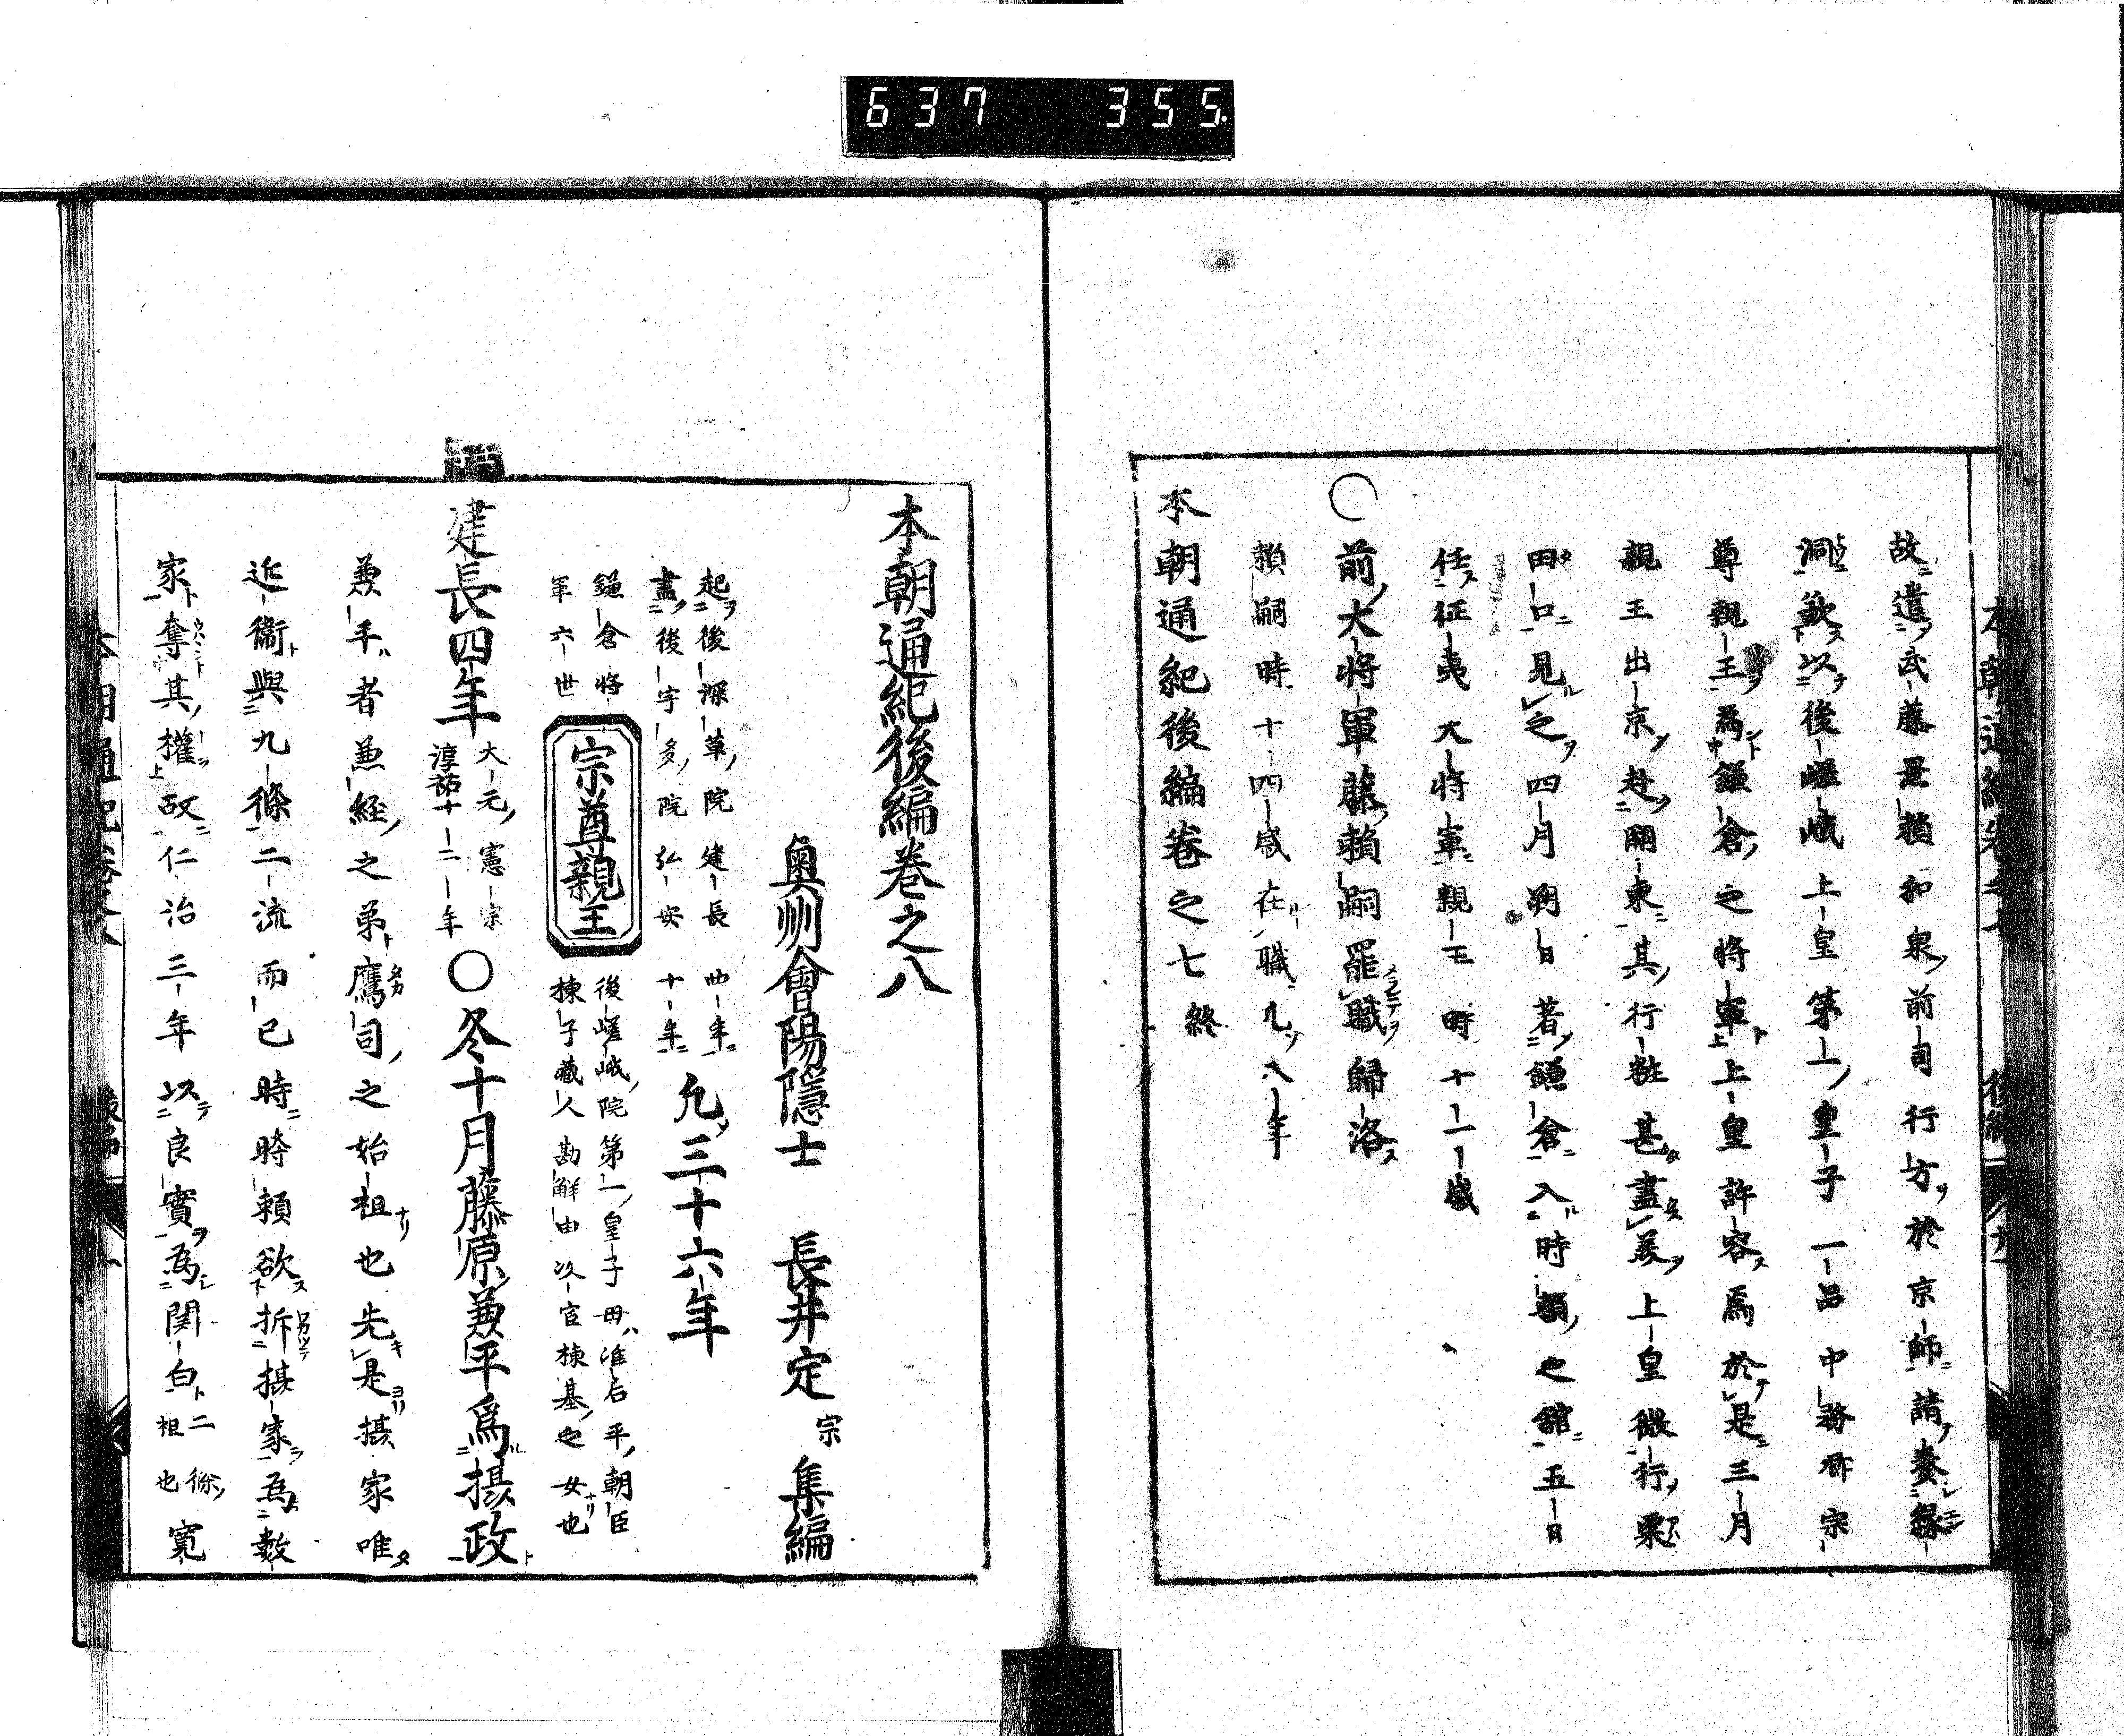 637 355
故遣武藤景頼和泉前司行方於京師請奏緑
洞欲以後嵯峨上皇第一皇子一品中務卿宗
尊親王為鎌倉之將軍上皇許容焉於是三月
親王出京赴關東其行粧甚盡美上皇微行粟
田口見之四月朔日著鎌倉入時頼之舘五日
任征夷大將軍親王時十一歳
○前大將軍藤頼嗣罷職歸洛
頼嗣時十四歳在職九八年
本朝通紀後編卷之七終
本朝通紀後編卷之八
奥州會陽隱士 長井定宗集編
起後深草院建長四年
盡後宇多院弘安十年
凡三十六年
鎌倉將
軍六世
宗尊親王
後嵯峨院第一皇子母准后平朝臣
棟子藏人勘解由次官棟基之女也
建長四年
大元憲宗
淳祐十二年
○冬十月藤原兼平爲攝政
兼平者兼経之弟鷹司之始祖也先是攝家唯
近衞與九條二流而已時時頼欲拆攝家為數
家奪其權故仁治三年以良實為関白
二條
祖也
寛